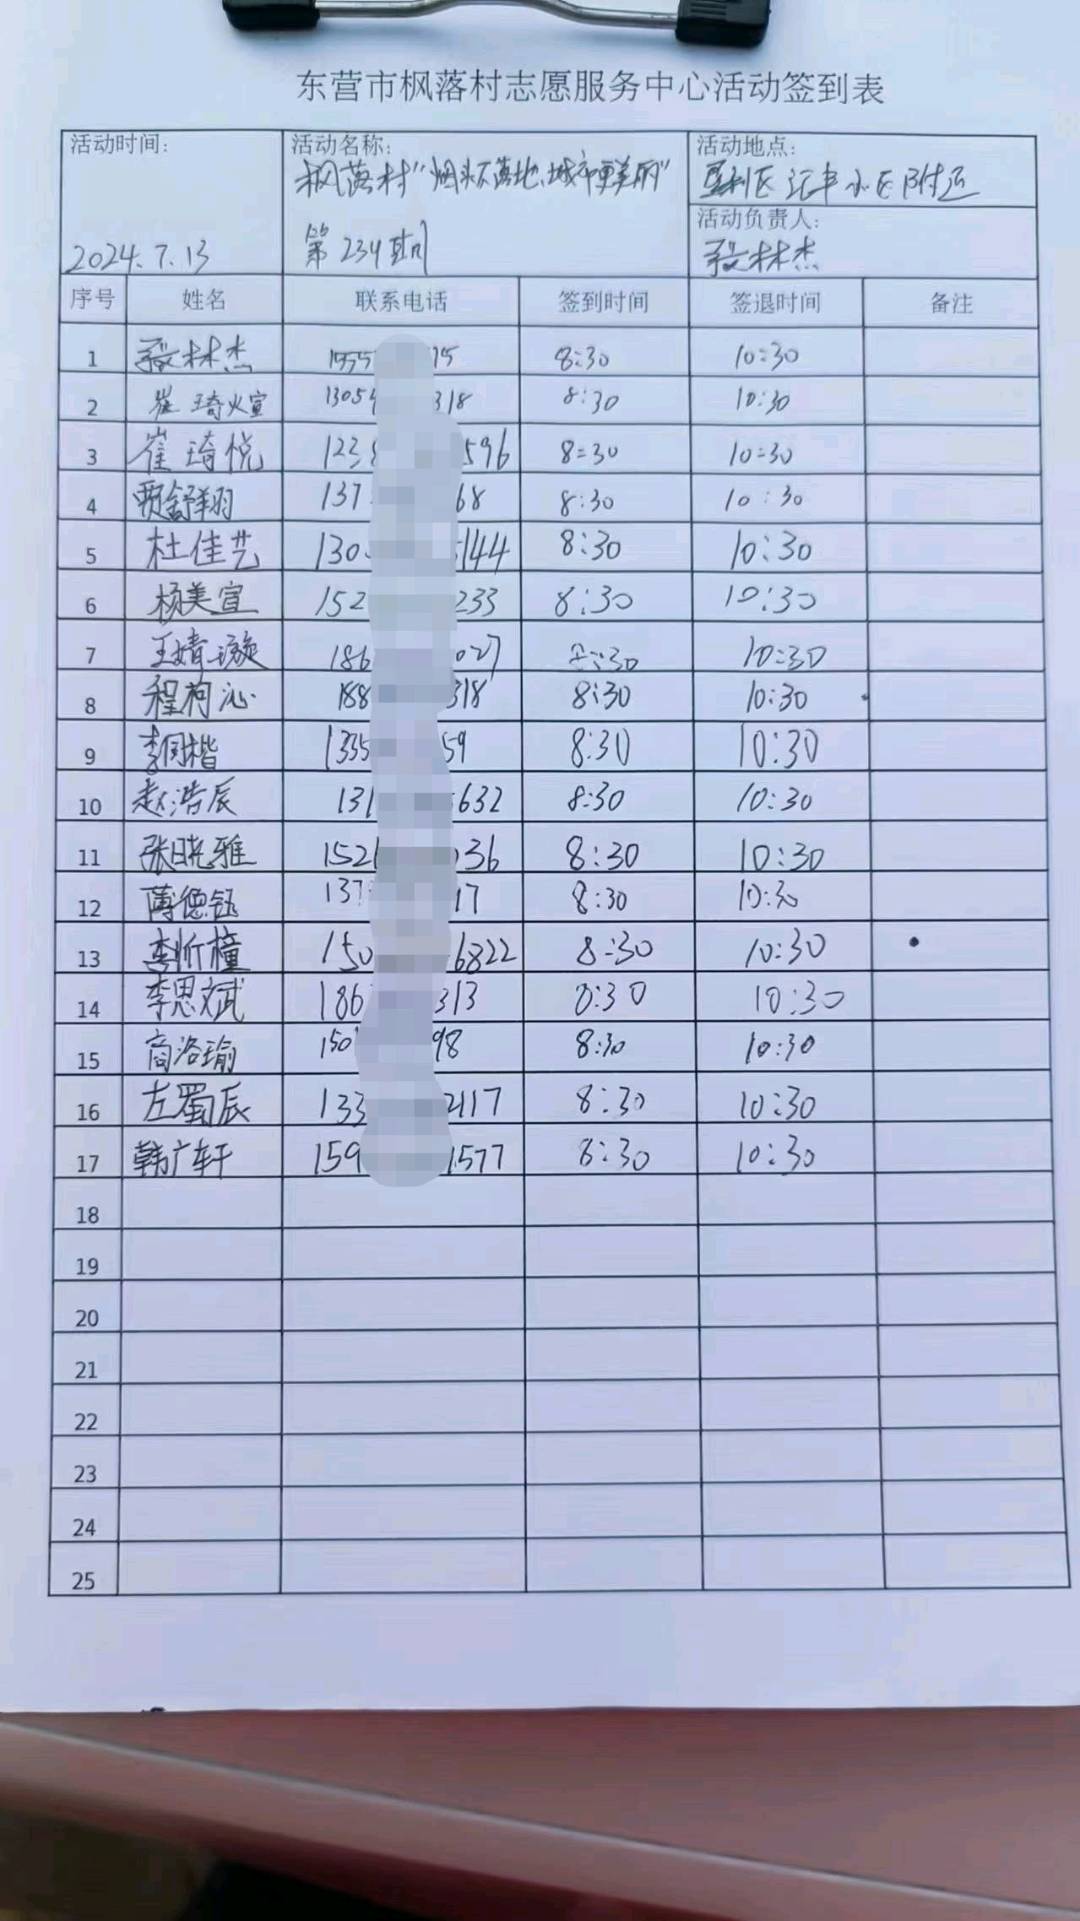 东营市枫落村志愿服务中心活动签到表
活动时间: 活动名称: 活动地点:
枫落村"烟头不落地,城市更美丽" 垦利区汇丰小区附近
活动负责人:
2024.7.13 第234期 林杰
序号 姓名 联系电话 签到时间 签退时间 备注
1 林杰 1555 75 8:30 10:30
2 崔琦煊 1305 318 8:30 10:30
3 崔琦悦 1238 596 8:30 10:30
4 贾舒翔 137 68 8:30 10:30
5 杜佳艺 130 144 8:30 10:30
6 杨美宣 152 233 8:30 10:30
7 王婧璇 186 027 8:30 10:30
8 程 沁 188 318 8:30 10:30
9 李 楷 1335 59 8:30 10:30
10 赵浩辰 131 632 8:30 10:30
11 张晓雅 152 036 8:30 10:30
12 薄德钰 137 17 8:30 10:30
13 李忻橦 150 6822 8:30 10:30
14 李思斌 186 313 8:30 10:30
15 商洛瑜 150 98 8:30 10:30
16 左蜀辰 133 2117 8:30 10:30
17 韩广轩 159 1577 8:30 10:30
18
19
20
21
22
23
24
25